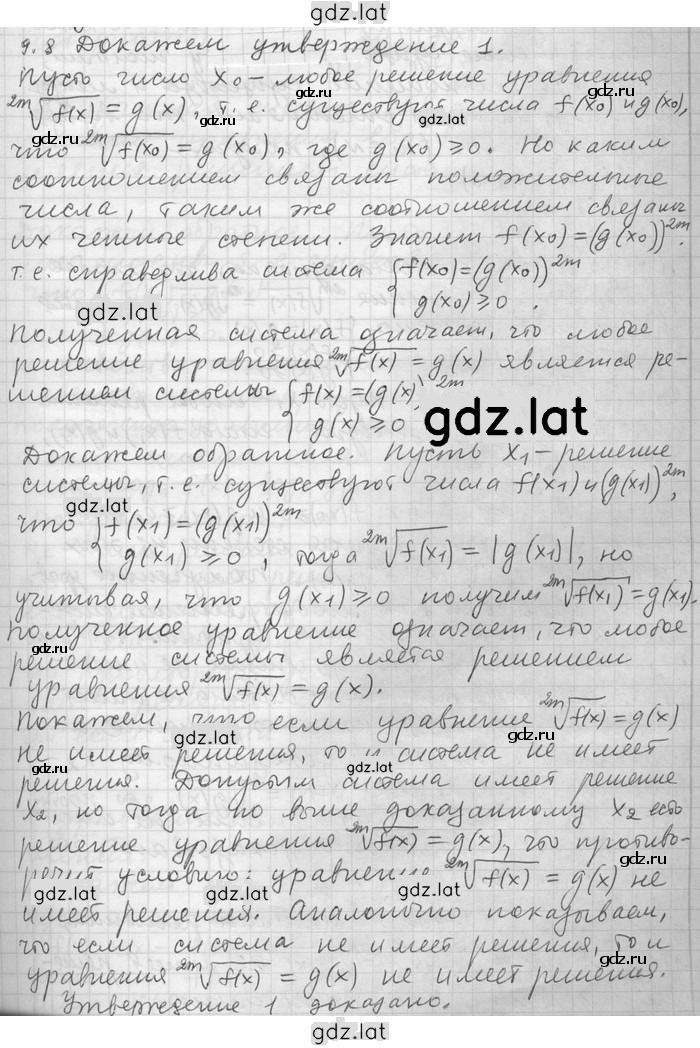 gdz.lat
9.8 Докажем утверждение 1.
Пусть число x₀ – любое решение уравнения
²ᵐ√f(x) = g(x), т.е. существуют числа f(x₀) и g(x₀),
что ²ᵐ√f(x₀) = g(x₀), где g(x₀) ≥ 0. Но каким
соотношением связаны положительные
числа, таким же соотношением связаны
их четные степени. Значит f(x₀) = (g(x₀))²ᵐ.
т.е. справедлива система { f(x₀) = (g(x₀))²ᵐ
g(x₀) ≥ 0 .
Полученная система означает, что любое
решение уравнения ²ᵐ√f(x) = g(x) является ре-
шением системы { f(x) = (g(x) ²ᵐ
g(x) ≥ 0
Докажем обратное. Пусть x₁ – решение
системы, т.е. существуют числа f(x₁) и (g(x₁))²ᵐ,
что { f(x₁) = (g(x₁))²ᵐ
g(x₁) ≥ 0, тогда ²ᵐ√f(x₁) = |g(x₁)|, но
учитывая, что g(x₁) ≥ 0 получим ²ᵐ√f(x₁) = g(x₁).
Полученное уравнение означает, что любое
решение системы является решением
уравнения ²ᵐ√f(x) = g(x).
Покажем, что если уравнение ²ᵐ√f(x) = g(x)
не имеет решения, то и система не имеет
решения. Допустим система имеет решение
x₂, но тогда по выше доказанному x₂ есть
решение уравнения ²ᵐ√f(x) = g(x), что противо-
речит условию: уравнение ²ᵐ√f(x) = g(x) не
имеет решения. Аналогично показываем,
что если система не имеет решения, то и
уравнения ²ᵐ√f(x) = g(x) не имеет решения.
Утверждение 1 доказано.
gdz.lat